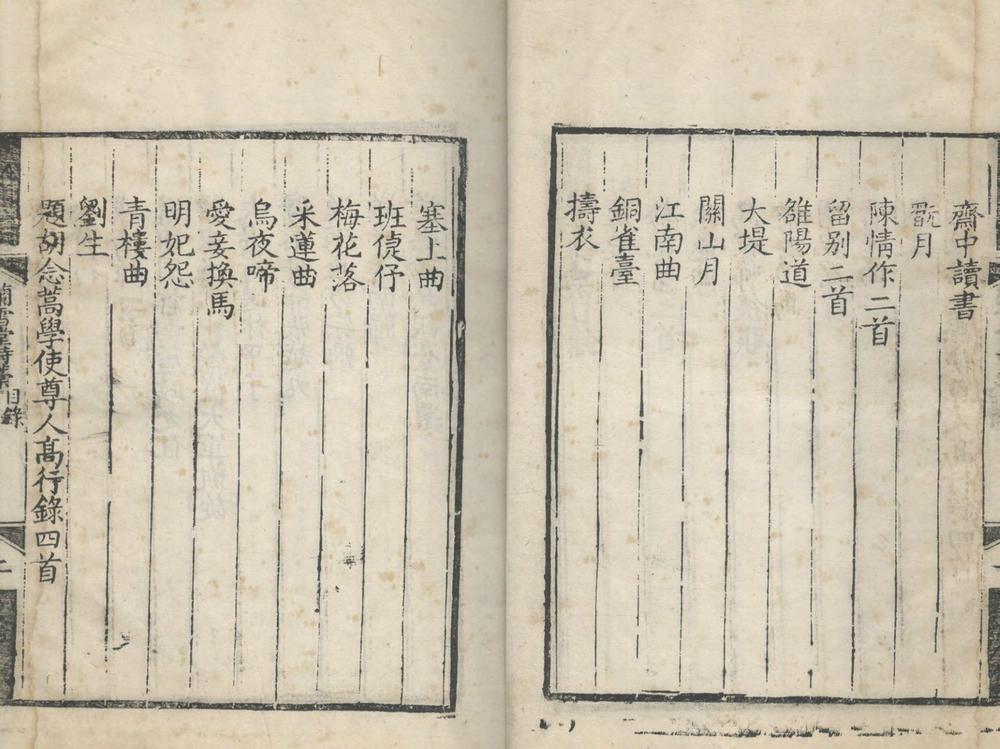 齋中讀書
翫月
陳情作二首
留别二首
雒陽道
大堤
關山月
江南曲
銅雀臺
擣衣
塞上曲
班倢伃
梅花落
采蓮曲
烏夜啼
愛妾換馬
明妃怨
青樓曲
劉生
題胡念蒿學使尊人高行錄四首
蘭雪堂詩藁 目錄
二